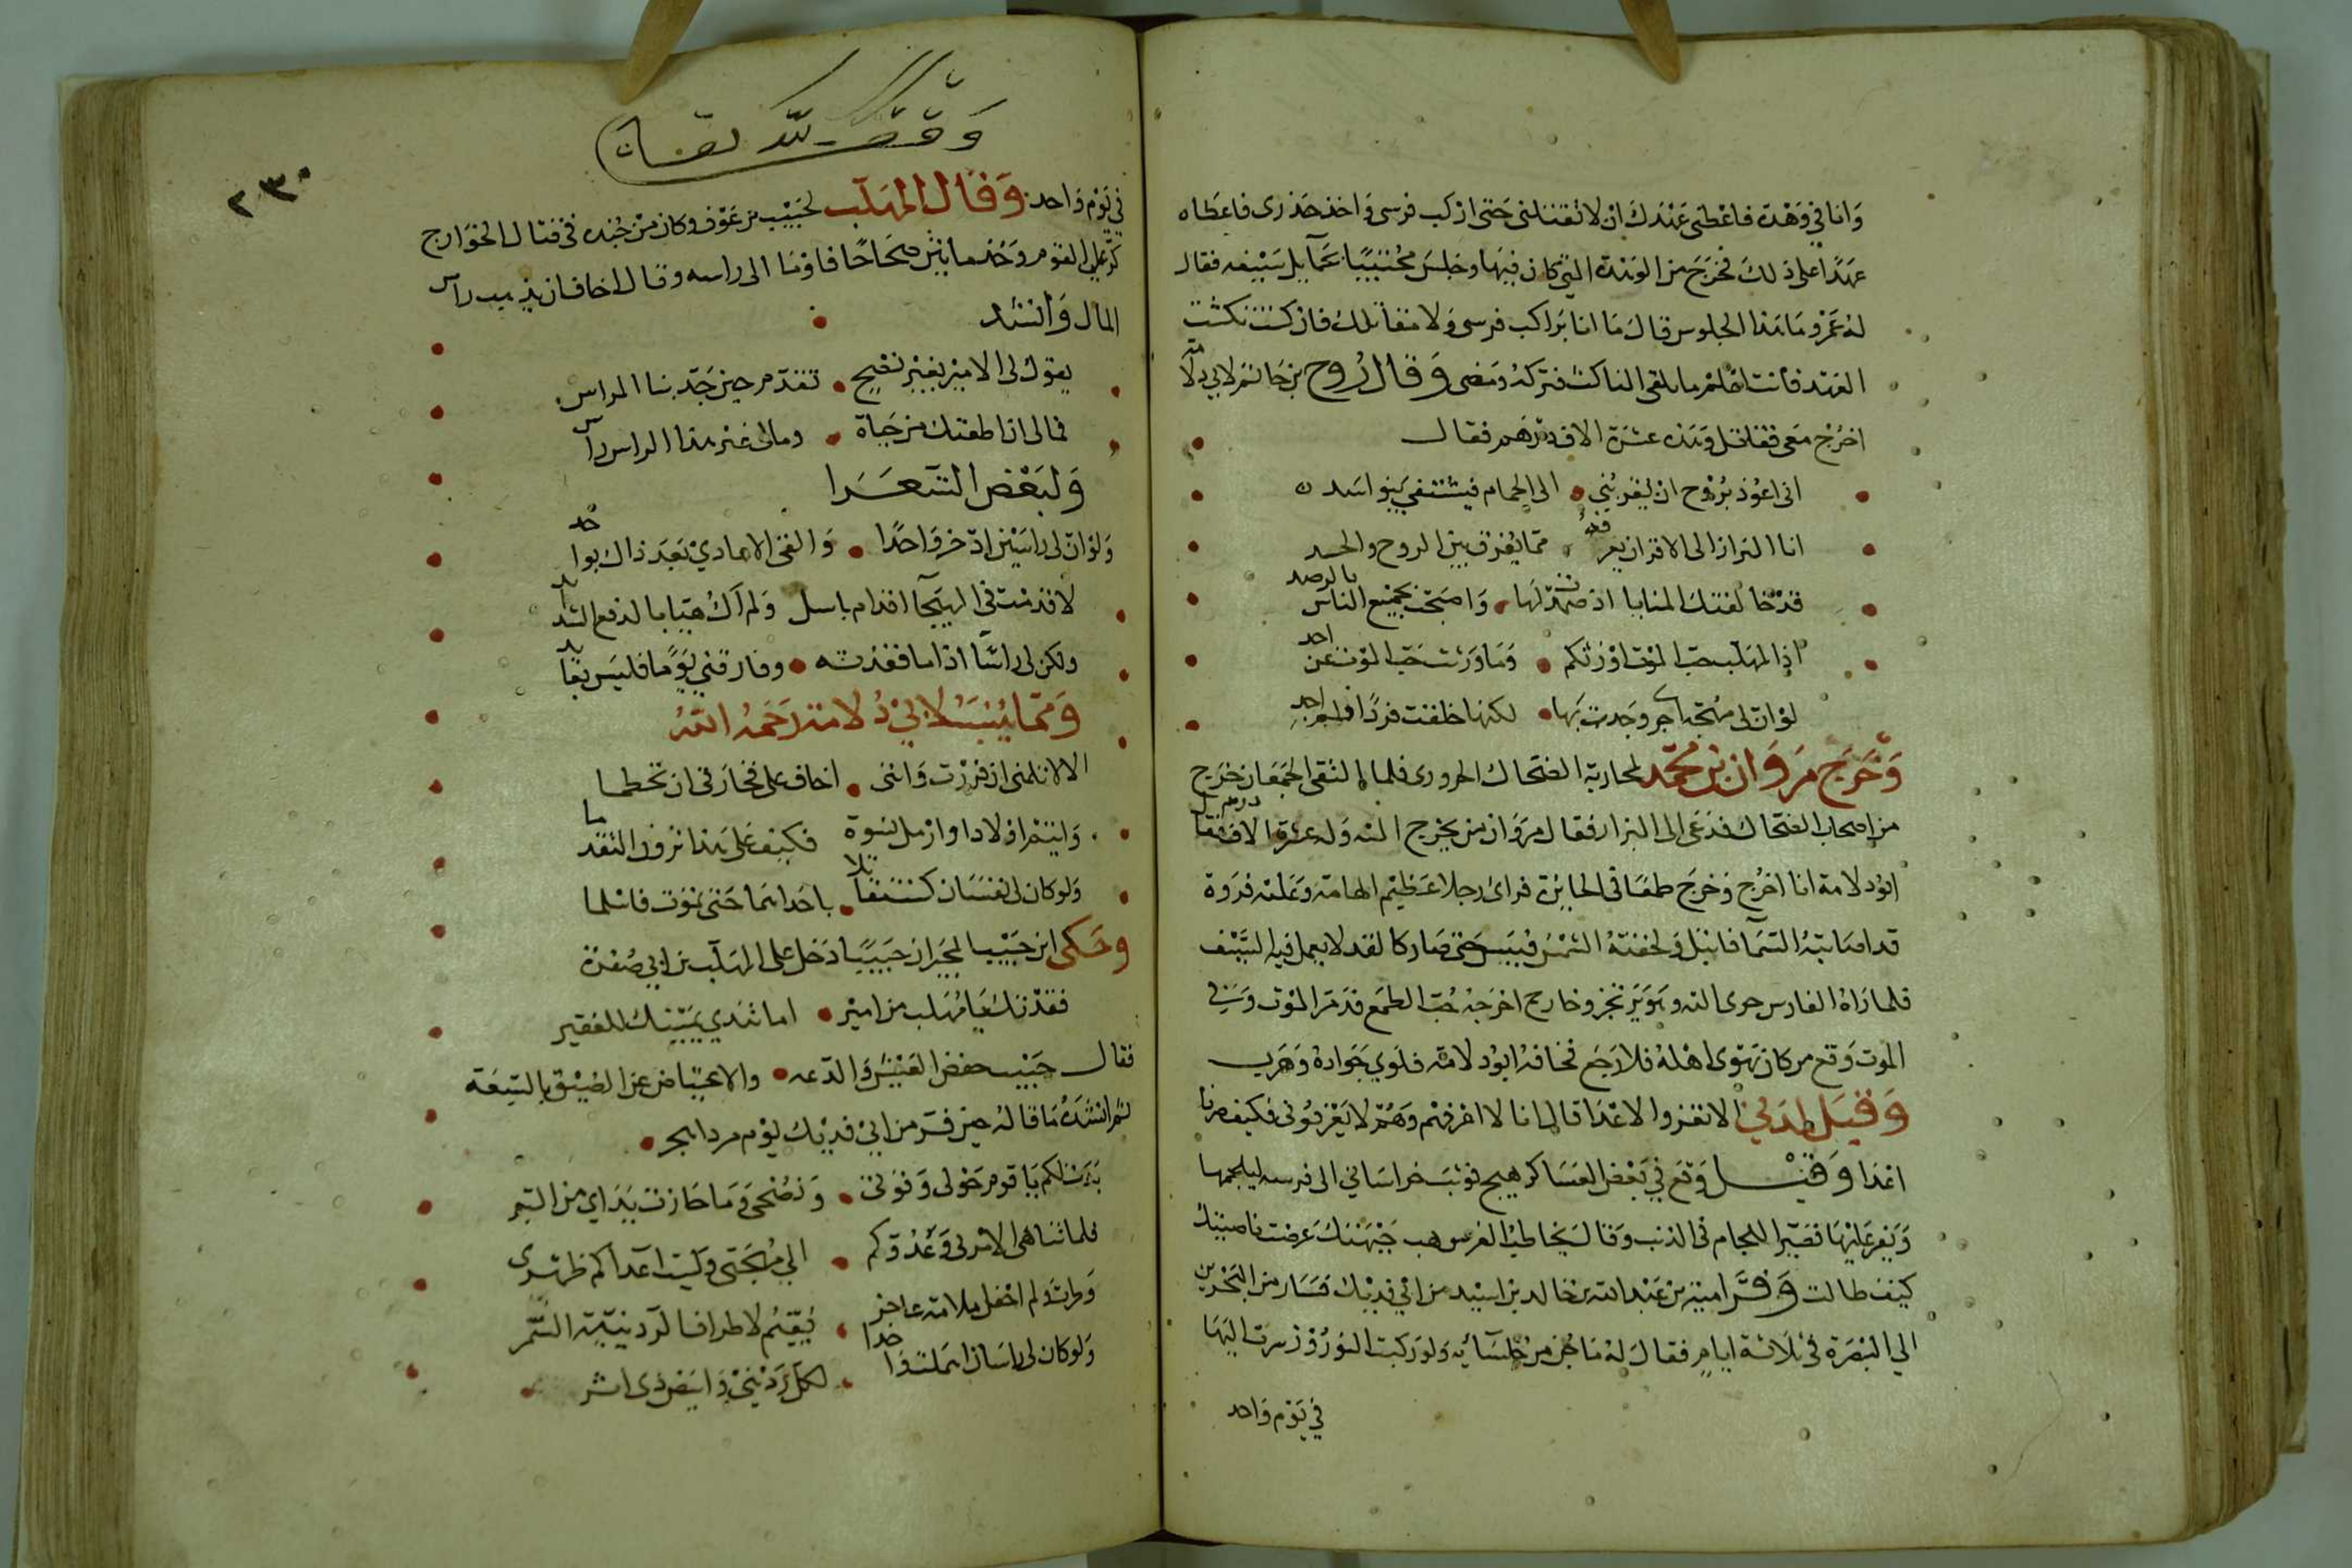 وانا في وهدة فاعطني عهدك ان لا تقتلني حتى اركب فرسي واخذ حذرى فاعطاه
عهدًا على ذلك فخرج من الوهدة التي كان فيها وجلس محتبيًا بحمآيل سيفه فقال
له عمرو ما هذا الجلوس قال ما انا براكب فرسي ولا مقاتلك فان كنت نكثت
العهد فأنت اعلم ما يلقى الناكث فتركه ومضى وقال روح بن حاتم لابي دلامة
اخرج معى فقاتل وهذه عشرة الاف درهم فقال
انى اعوذ بروح ان يقربني • الى الحمام فيشتفي بي بنو اسد
ان البراز الى الاقران يعرفه • مما يفرق بين الروح والجسد
قد خالفتك المنايا اذ صمدت لها • واصبحت بجميع الناس بالرصد
اذ المهلب حب الموت اورثكم • وما ورثت حب الموت عن احد
لو ان لى مهجة اخرى وجدت بها • لكنها خلقت فردًا فلم اجد
وخرج مروان بن محمد لمحاربة الضحاك الحرورى فلما التقى الجمعان خرج
من اصحاب الضحاك فدعى الى البراز فقال مروان من يخرج اليه وله عشرة الاف درهم فقال
ابو دلامة انا اخرج وخرج طمعًا في الجايزة فراى رجلا عظيم الهامة وعليه فروة
قد اصابته السمآ فابتل ولحفته الشمس فيبس حتى صار كالقد لا يعمل فيه السيف
فلما راه الفارس جرى اليه وهو يرتجز وخارج اخرجه حب الطمع فر من الموت وفي
الموت وقع من كان يهوى اهله فلا رجع فخافه ابو دلامة فلوي جواده وهرب
وقيل لمدني الا تغزوا الاعدا قال انا لا اعرفهم وهم لا يعرفوني فكيف صرنا
اعدا وقيل وقع في بعض العساكر هيج فوثب خراساني الى فرسه ليلجمها
ويفر عليها فصير اللجام في الذنب وقال يخاطب الفرس هب جبهتك عرضت ناصيتك
كيف طالت وفر امية بن عبد الله بن خالد بن اسيد من ابي فديك فسار من البحرين
الي البصرة في ثلاثة ايام فقال له ما جن من جلسآئه ولو ركبت النوروز سرت اليها
في يوم واحد
وقف لله تعالى
٢٣٠
في يوم واحد وقال المهلب لحبيب بن عوف وكان من جنده في قتال الخوارج
كر على القوم وخذ مايتين صحاحًا فاومأ الى راسه وقال اخاف ان يذهب رآس
المال وانشد
يقول لى الامير بغير نصيح • تقدم حين جد بنا المراس
فمالى ان اطعتك من حياة • ومالى غير هذا الراس رآس
ولبعض الشعرا
ولو ان لى راسين ادخر واحدًا • والقى الاعادي بعد ذاك بواحد
لاقدمت في الهيجآ اقدام باسل ولم اك هيابا لدفع الشدآيد
ولكن لى راسًا اذا ما فقدته • وفارقني يومًا فليس بعآيد
ومما ينسب لابي دلامة رحمه الله
الا لا تلمنى ان فررت واننى • اخاف على فخارتى ان تحطما
وايتم اولادا وارمل نسوة فكيف على هذا ترون التقدما
ولو كان لى نفسان كنت مقاتلا • باحداهما حتى تموت فاسلما
وحكى ابن حبيب المجبر ان حبيبًا دخل على المهلب بن ابي صفرة
فقدتك يا مهلب من امير • اما تندي يمينك للفقير
فقال حبيب خفض العيش والدعه • والاعتياض عن الضيق بالسعة
ثم انشده ما قاله حين فر من ابي فديك يوم مردا هجر •
بذلت لكم يا قوم حولى وقوتى • ونصحى وما حازت يداي من التبر
فلما تناهى الامر بي وعدوكم • الي مهجتى وليت اعدآكم ظهرى
وطرت ولم احفل ملامة عاجز • يقيم لاطراف الردينية السمر
ولو كان لى راسان اهملت واحدا • لكل ردينى وابيض ذى اثر